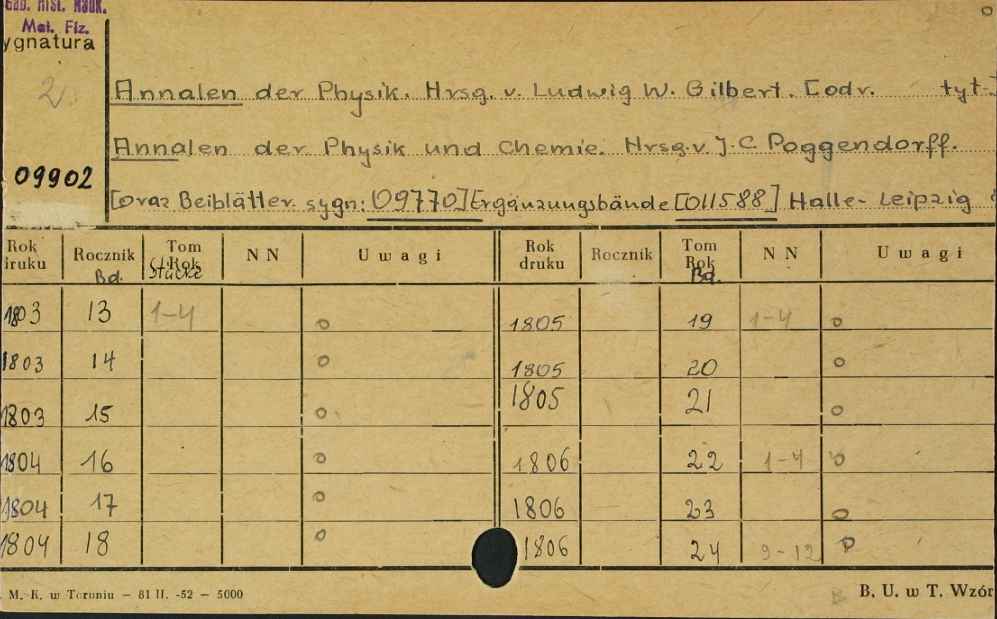 Gab. Hist. Nauk.
Mat. Fiz.
ygnatura
2
Annalen der Physik. Hrsg. v. Ludwig W. Gilbert. [odr. tyt.]
Annalen der Physik und Chemie. Hrsg. v. J. C Poggendorff.
09902
[oraz Beiblätter. sygn: [09770] Ergänzungsbände [011588] Halle - Leipzig
Rok druku Rocznik Bd. Tom Rok Stücke NN Uwagi Rok druku Rocznik Tom Rok Bd. NN Uwagi
1803 13 1-4 o 1805 19 1-4 o
1803 14 o 1805 20 o
1803 15 o 1805 21 o
1804 16 o 1806 22 1-4 o
1804 17 o 1806 23 o
1804 18 o 1806 24 9-12 o
M. K. w Toruniu - 81 II. -52 - 5000 B. U. w T. Wzór